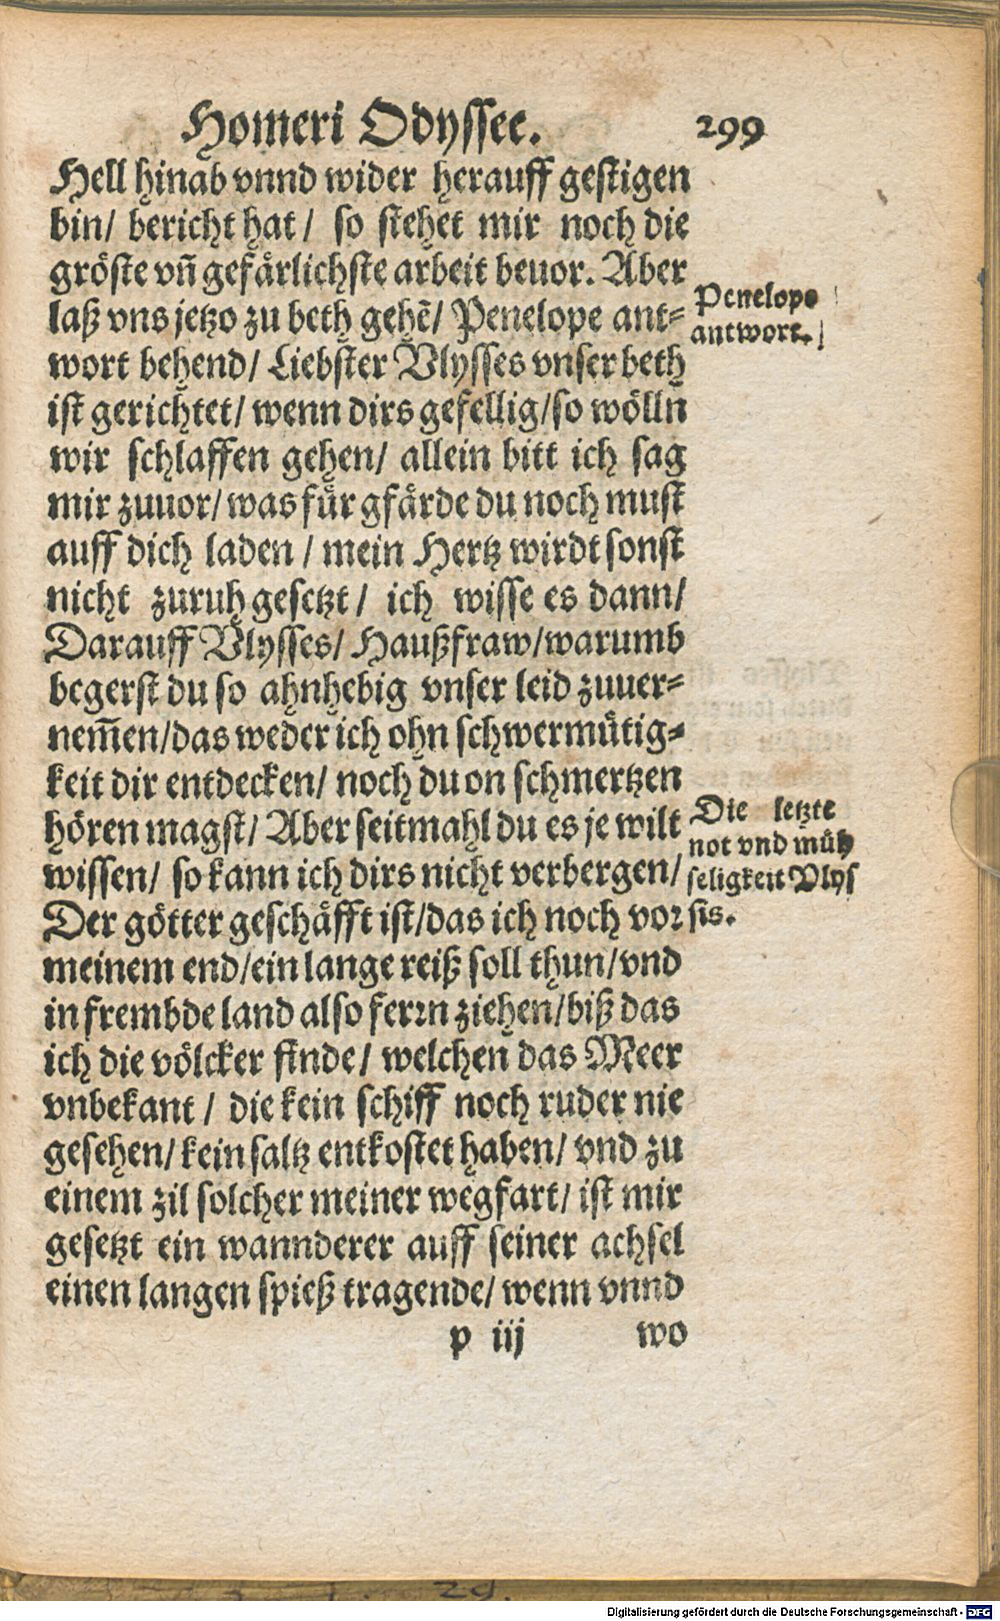 Homeri Odyssee. 299
Hell hinab vnnd wider herauff gestigen
bin/ bericht hat/ so stehet mir noch die
gröste vñ gefärlichste arbeit beuor. Aber
laß vns jetzo zu beth gehẽ/ Penelope ant=
wort behend/ Liebster Vlysses vnser beth
ist gerichtet/ wenn dirs gefellig/ so wölln
wir schlaffen gehen/ allein bitt ich sag
mir zuuor/ was für gfärde du noch must
auff dich laden/ mein Hertz wirdt sonst
nicht zuruh gesetzt/ ich wisse es dann/
Darauff Vlysses/ Haußfraw/ warumb
begerst du so ahnhebig vnser leid zuuer=
nem̃en/ das weder ich ohn schwermütig=
keit dir entdecken/ noch du on schmertzen
hören magst/ Aber seitmahl du es je wilt
wissen/ so kann ich dirs nicht verbergen/
Der götter geschäfft ist/ das ich noch vor
meinem end/ ein lange reiß soll thun/ vnd
in frembde land also ferrn ziehen/ biß das
ich die völcker finde/ welchen das Meer
vnbekant/ die kein schiff noch ruder nie
gesehen/ kein saltz entkostet haben/ vnd zu
einem zil solcher meiner wegfart/ ist mir
gesetzt ein wannderer auff seiner achsel
einen langen spieß tragende/ wenn vnnd
p iij wo
Penelope
antwort.
Die letzte
not vnd müh
seligkeit Vlys
sis.
29.
Digitalisierung gefördert durch die Deutsche Forschungsgemeinschaft - DFG